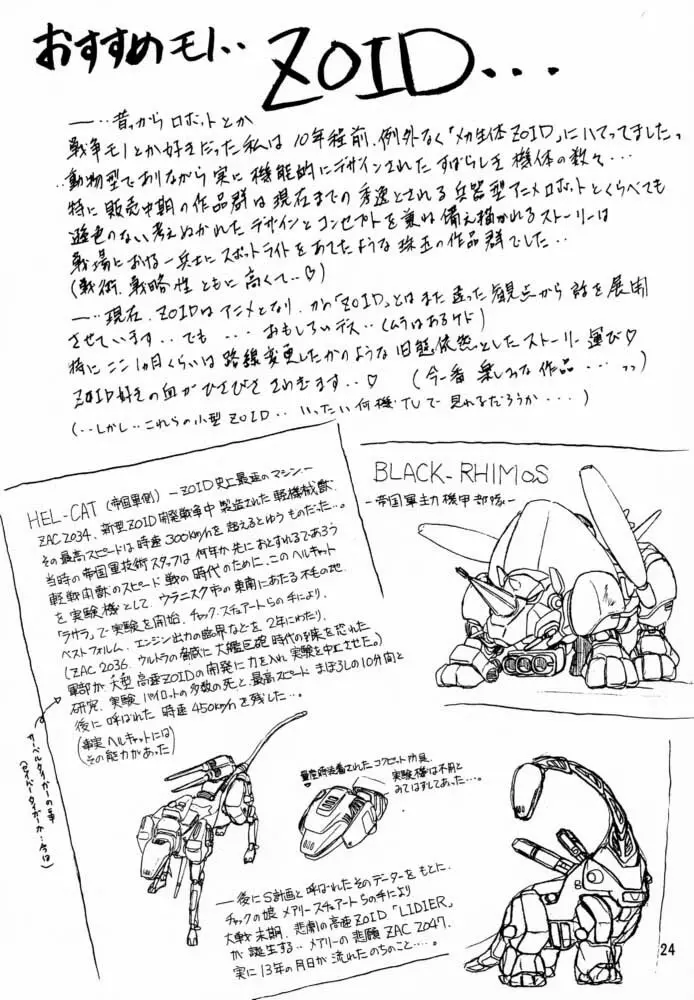 おすすめモノ‥
ZOID...
―‥昔っからロボットとか
戦争モノとか好きだった私は 10年程前、例外なく「メカ生体ZOID」にハマってましたっ
‥動物型でありながら実に機能的にデザインされたすばらしき機体の数々…
特に販売中期の作品群は現在までの秀逸とされる兵器型アニメロボットとくらべても
遜色のない考えぬかれたデザインとコンセプトを兼ね備え描かれるストーリーは
戦場における一兵士にスポットライトをあてたような珠玉の作品群でした‥
(戦術、戦略性ともに高くて‥♡)
―‥現在、ZOIDはアニメとなり、かの「ZOID」とはまた違った観点から話を展開
させています‥でも…おもしろいデス‥(ムラはあるケド)
特にここ1ヵ月くらいは路線変更したかのような旧態依然としたストーリー運び♡
ZOID好きの血がひさびささわぎます‥♡ (今一番楽しみな作品…っっ)
(‥しかし‥これらの小型ZOID‥いったい何機TVで見れるだろうか‥‥)
HEL-CAT (帝国軍側) ―ZOID史上最速のマシン―
ZAC2034、新型ZOID開発戦争中製造された軽機械獣、
その最高スピードは時速300km/hを超えるとゆうものだった…。
当時の帝国軍技術スタッフは何年か先におとずれるであろう
軽戦闘獣のスピード戦の時代のために、このヘルキャット
を実験機として、ウラニスク市の東南にあたる不毛の地、
「ラサラ」で実験を開始、チャック・スチュアートらの手により、
ベストフォルム、エンジン出力の臨界などを、2年にわたり、
(ZAC2036、ウルトラの脅威に大艦巨砲時代の到来を恐れた
軍部が、大型高速ZOIDの開発に力を入れ実験を中止させた。)
研究、実験パイロットの多数の死と、最高スピードまぼろしの10分間と
後に呼ばれた 時速450km/hを残した…。
(事実ヘルキャットには
その能力があった)
サーベルタイガーの事
(セイバータイガーか…今は)
BLACK-RHIMOS
―帝国軍主力機甲部隊―
量産時装着されたコクピット防具、
実験機は不用と
みてはずしてあった…。
――後にS計画と呼ばれたそのデーターをもとに、
チャックの娘 メアリースチュアートらの手により
大戦末期、悲劇の高速ZOID「LIDIER」
が誕生する‥メアリーの悲願ZAC2047、
実に13年の月日が流れたのちのこと…。
24